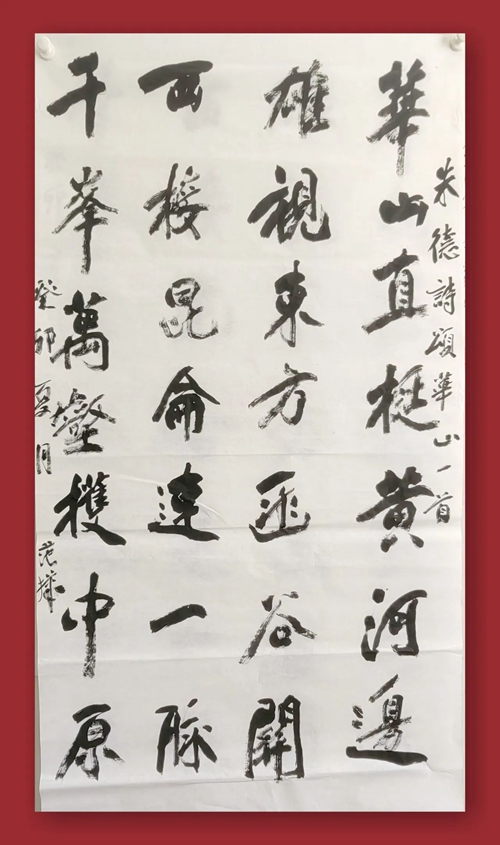 朱德詩頌華山一首
華山直挺黄河邊
雄視東方函谷開
西接昆侖連一脈
千峯萬壑獲中原
癸卯夏月